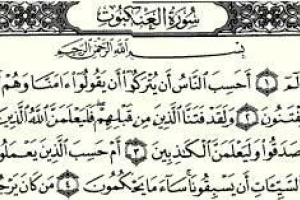 سُورَةُ العَنكَبُوتِ
بِسْمِ اللَّهِ الرَّحْمَٰنِ الرَّحِيمِ
الٓمٓ ١ أَحَسِبَ النَّاسُ أَن يُتْرَكُوٓا أَن يَقُولُوٓا ءَامَنَّا وَهُمْ
يُفْتَنُونَ ٢ وَلَقَدْ فَتَنَّا الَّذِينَ مِن قَبْلِهِمْ فَلَيَعْلَمَنَّ اللَّهُ الَّذِينَ
صَدَقُوا وَلَيَعْلَمَنَّ الْكَٰذِبِينَ ٣ أَمْ حَسِبَ الَّذِينَ يَعْمَلُونَ
السَّيِّـَٔاتِ أَن يَسْبِقُونَا سَآءَ مَا يَحْكُمُونَ ٤ مَن كَانَ يَرْجُوا